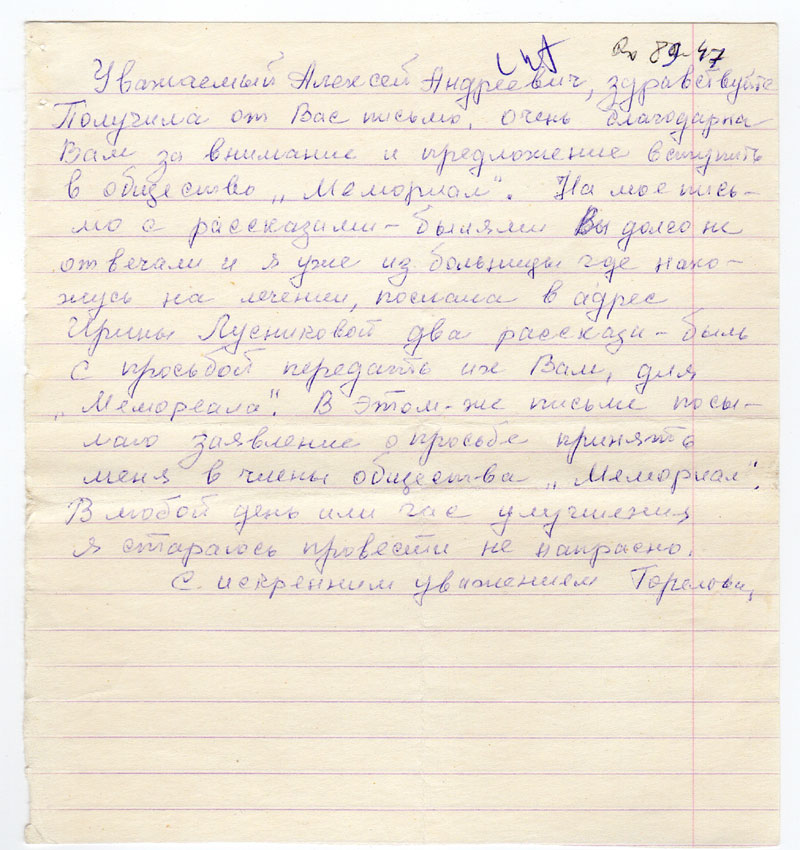 Вх 89-47
Уважаемый Алексей Андреевич, здравствуйте
Получила от Вас письмо, очень благодарна
Вам за внимание и предложение вступить
в общество „Мемориал“. На мое пись-
мо с рассказами-былями Вы долго не
отвечали и я уже из больницы где нахо-
жусь на лечении, послала в адрес
Ирины Лусниковой два рассказа-быль
с просьбой передать их Вам, для
„Мемореала“. В этом-же письме посы-
лаю заявление о просьбе принять
меня в члены общества „Мемориал“.
В любой день или час улучшения
я стараюсь провести не напрасно.
С искренним уважением